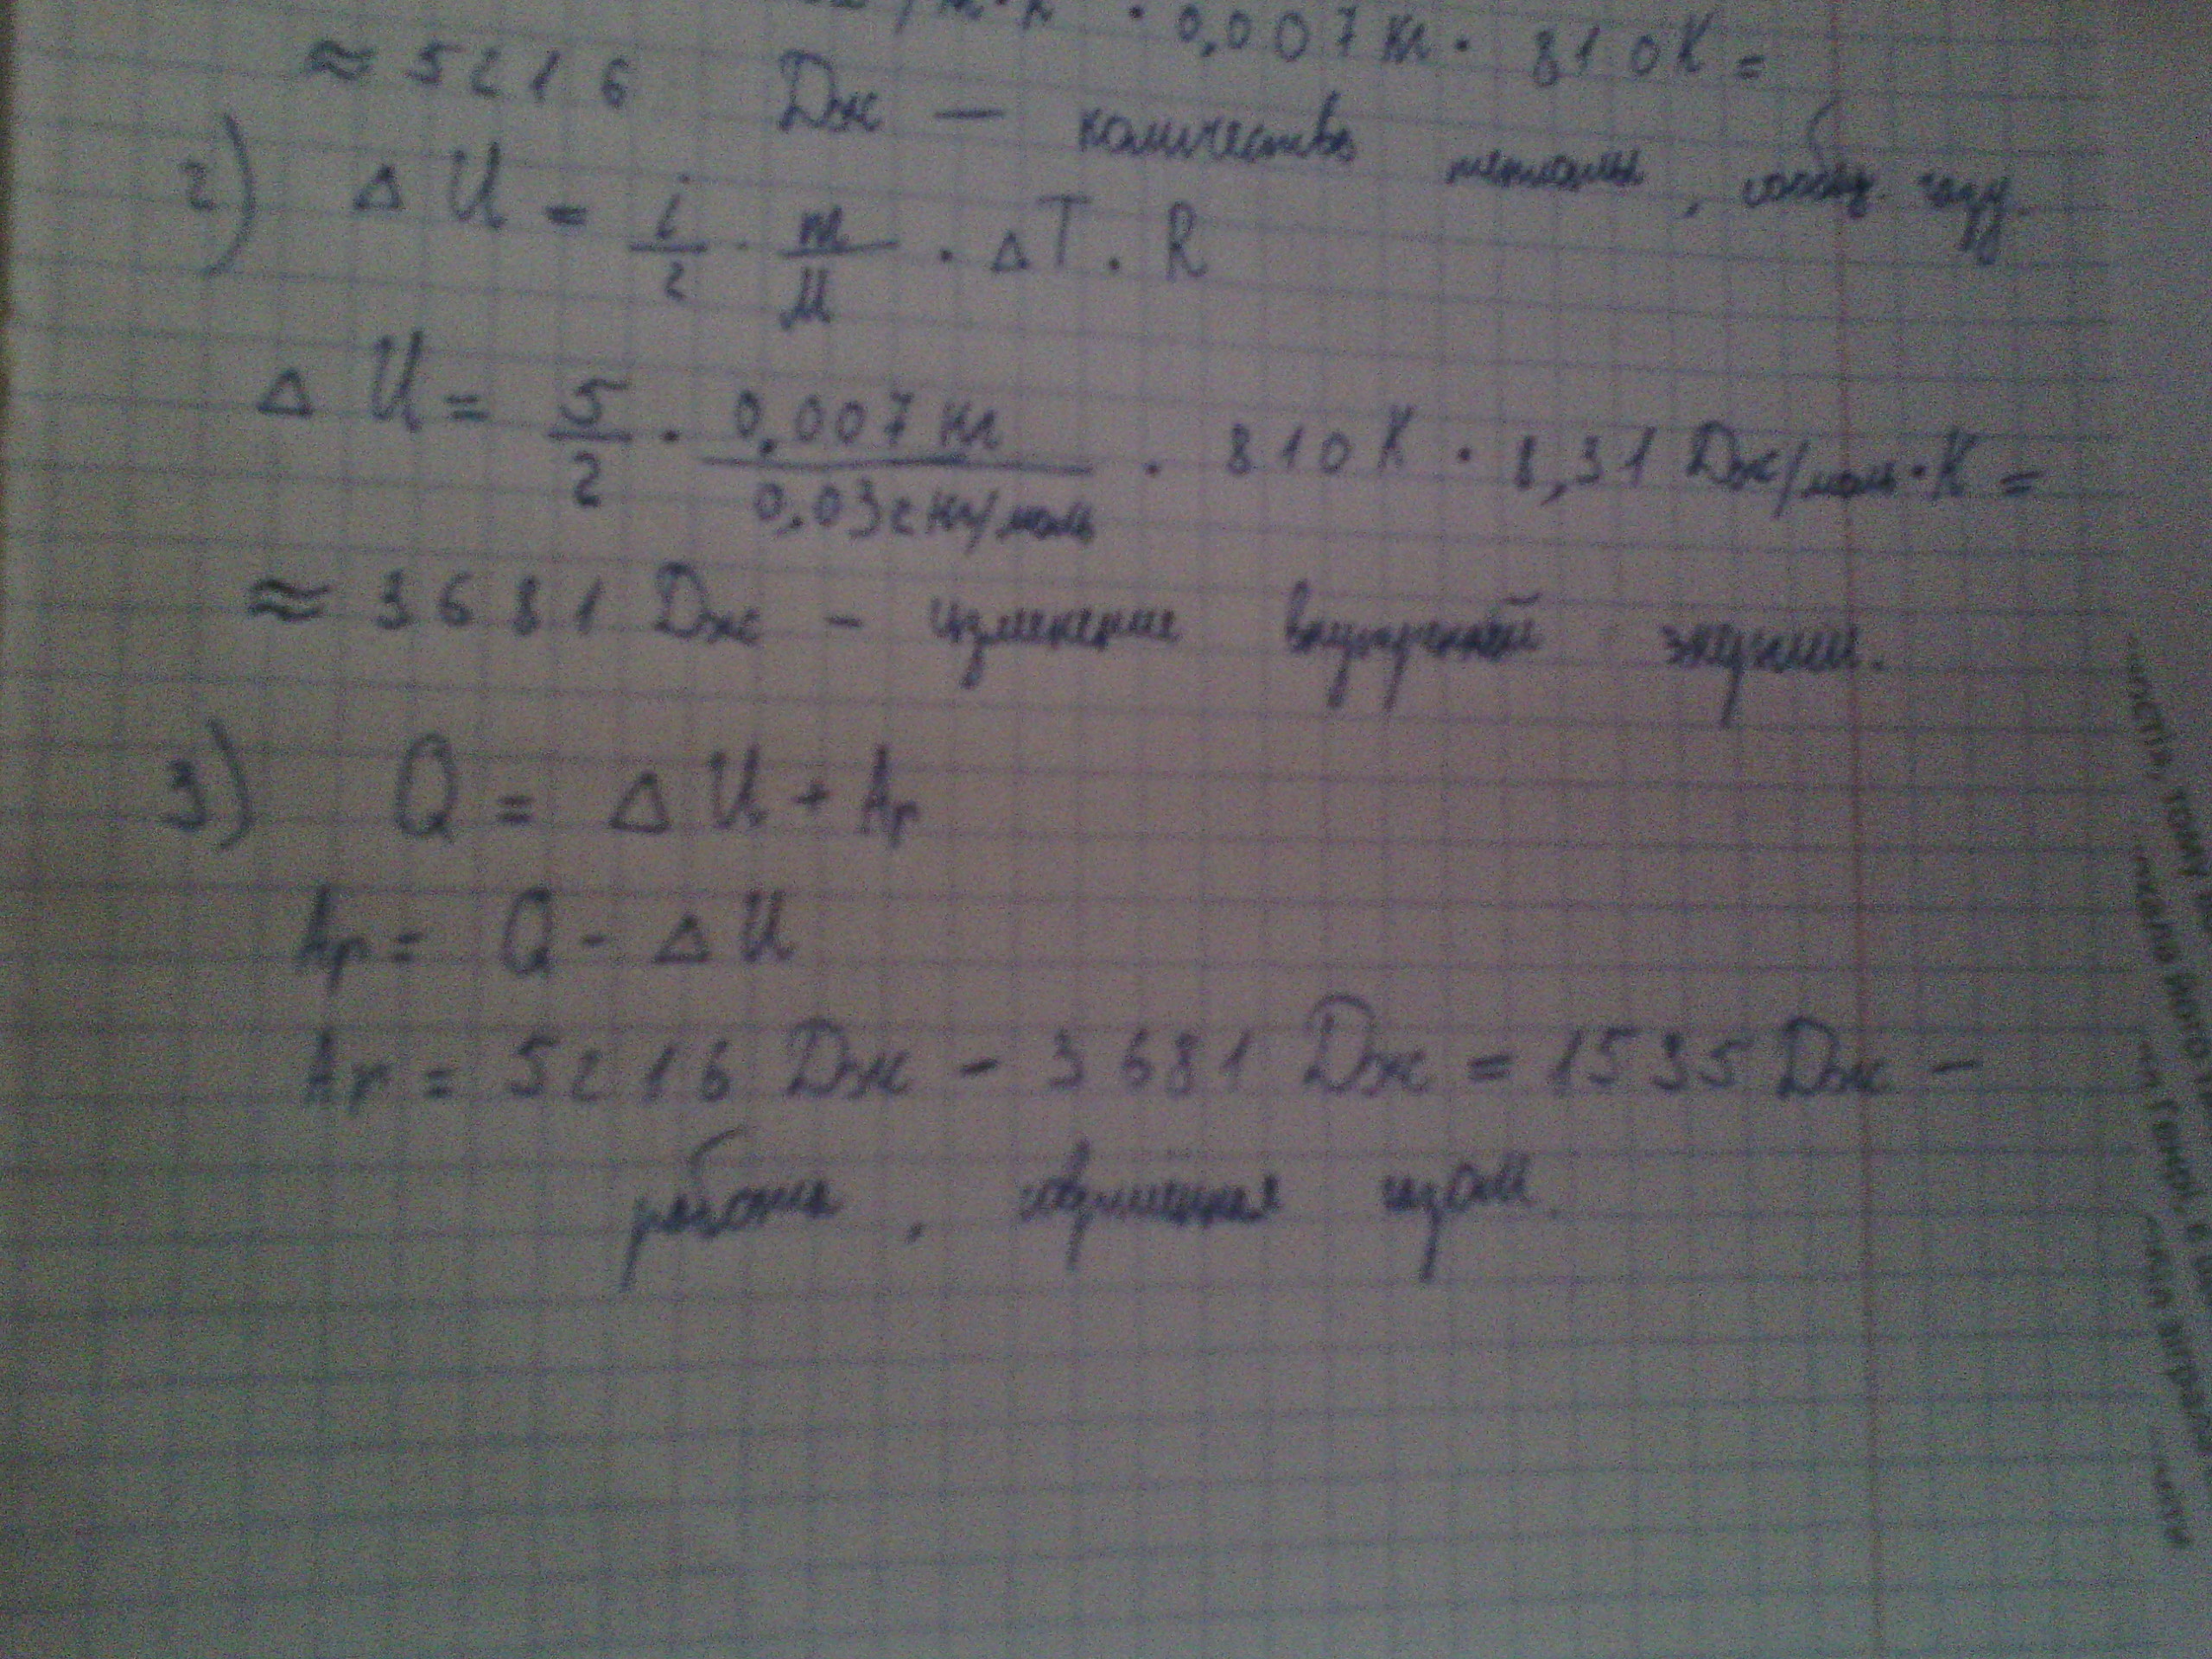 · 0,007 кг · 810К =
≈ 5216 Дж — количество теплоты, сообщ. газу.
2) Δ U = i/2 · m/M · ΔT · R
Δ U = 5/2 · 0,007 кг/0,032 кг/моль · 810 К · 8,31 Дж/моль·К =
≈ 3681 Дж – изменение внутренней энергии.
3) Q = Δ U + Ar
Ar = Q - Δ U
Ar = 5216 Дж - 3681 Дж = 1535 Дж –
работа, совершенная газом.